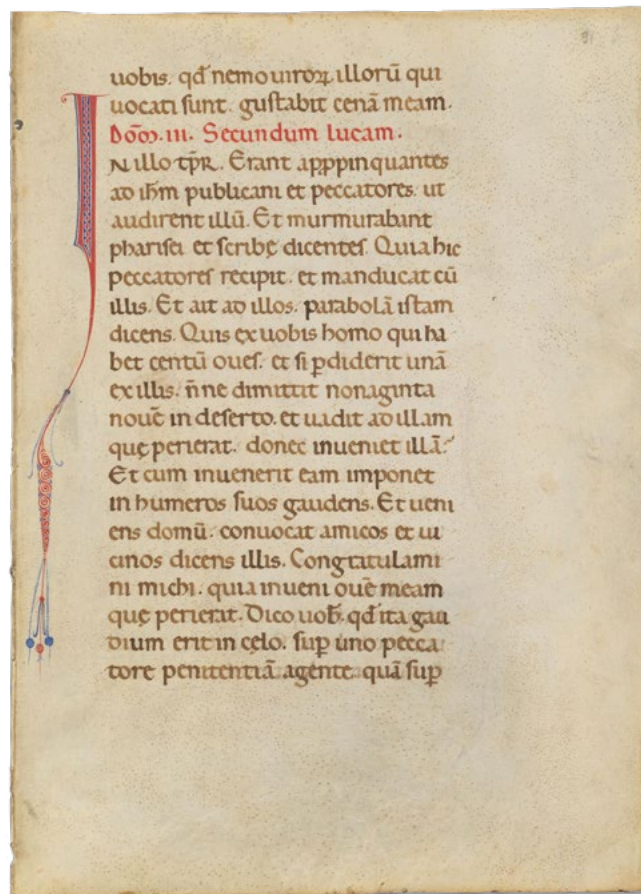 91
uobis. qđ nemo uiroꝝ illorū qui
uocati sunt. gustabit cenā meam.
Dōō. iii. Secundum lucam.
IN illo tp̄r. Erant apꝓpinquantes
ad ih̄m publicani et peccatores. ut
audirent illū. Et murmurabant
pharisei et scribę dicentes. Quia hic
peccatores recipit. et manducat cū
illis. Et ait ad illos. parabolā istam
dicens. Quis ex uobis homo qui ha
bet centū oues. et si ꝑdiderit unā
ex illis. n̄ne dimittit nonaginta
nouē in deserto. et uadit ad illam
quę perierat. donec inueniet illā?
Et cum inuenerit eam imponet
in humeros suos gaudens. Et ueni
ens domū. conuocat amicos et ui
cinos dicens illis. Congratulami
ni michi. quia inueni ouē meam
quę perierat. Dico uob̄. qđ ita gau
dium erit in cęlo. suꝑ uno pecca
tore penitentiā agente. quā suꝑ